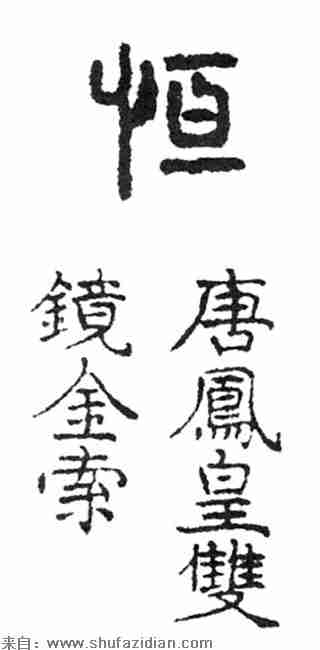 恒
唐鳳皇雙
鏡金索
来自：www.shufazidian.com